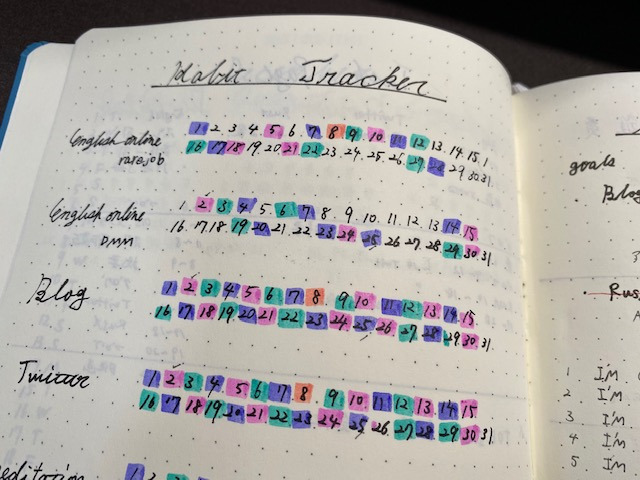 Habit Tracker
English online 1. 2. 3. 4. 5 6. 7 8 9. 10. 11 12 13. 14. 15. 1
rarejob 16 17 18. 19. 20. 21 22 23. 24. 25. 26. 27 28 29 30 31.
English online 1. 2 3 4 5. 6 7 8. 9. 10. 11. 12. 13 14 15
DMM 16. 17. 18. 19 20. 21. 22. 23 24 25 26. 27. 28. 29 30 31.
Blog 1 2 3 4 5 6 7 8 9 10 11 12 13 14 15
16 17 18 19 20 21 22 23 24 25 26 27 28 29 30 31.
Twitter 1 2 3 4 5 6 7 8. 9. 10 11 12 13 14 15
16 17 18 19 20 21 22 23 24 25 26 27 28 29 30 31
1 2 3
goals
· Blog
3
· Rus
A
1 I'M
2 I'M
3 I'M
4 I'M
5. I'M